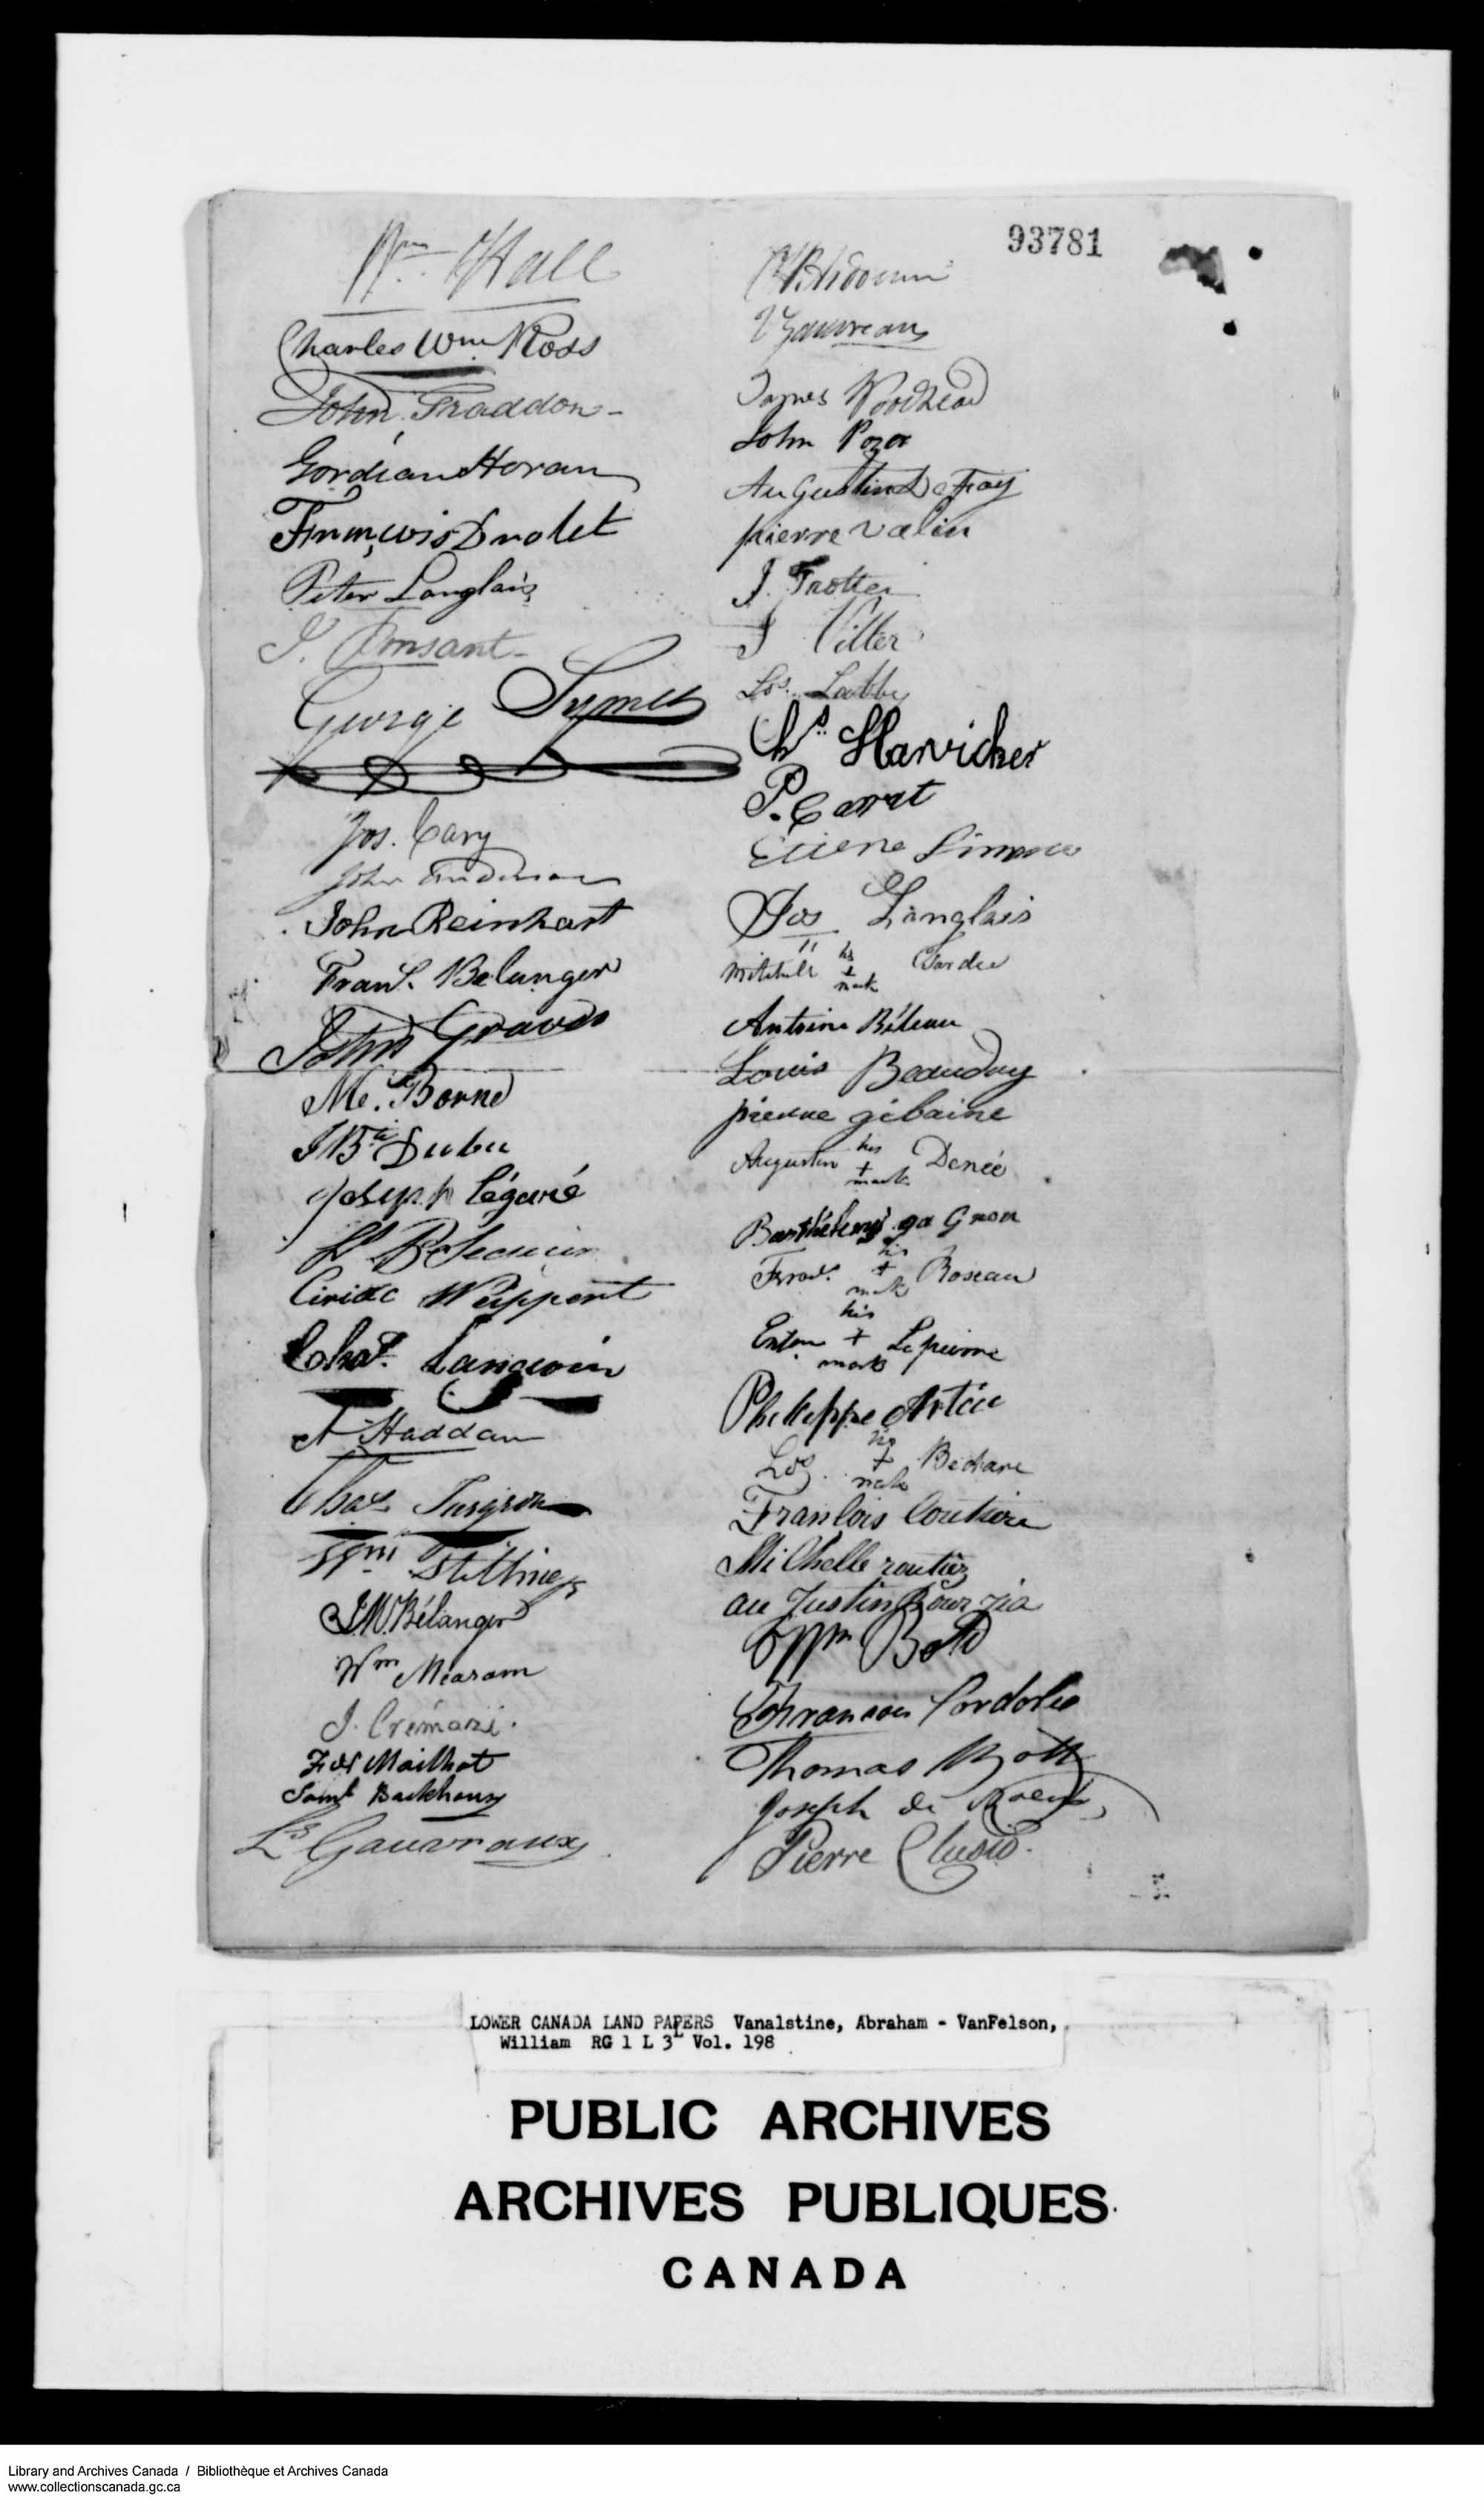 93781
Wm. Hall
Charles Wm. Ross
John Fraddon
Gordian Horan
François Drolet
Peter Langlais
J. Amsant
George Symes
Jos. Cary
John Anderson
John Reinhart
Frans. Belanger
John Graves
Me. Borne
J Bte Dubu
Joseph Légaré
Ls
Ciriac Weippert
Chas. Langevin
A Haddan
Chas Turgeon
Wm
J.W. Bélanger
Wm Mearam
J. Crémazie.
Frs Mailhot
Saml Backhouse
Ls Gauvraux
Gauvreau
James Woodhead
John Pozer
Augustin Defoy
pierre valin
J. Trotter
J Vitter
Jos. Labby
Chs. Harvicker
P. Carrat
Etiene Simard
Jos Langlais
Mitchele his + mark Tardie
Antoine Béleau
Louis Beaudoy
pierre gibaine
Augustin his + mark Denéé
Barthélemy ga Gnon
Frans. his + mark Roseau
his
Enton + Lapierre
mark
Philippe Artie
Los. his + mark Bedare
Franlois Coutiere
Milhelle routier
au Justin Bourzia
Wm Bold
Fransois Cordolie
Thomas Bott
Joseph de
Pierre Clusio.
LOWER CANADA LAND PAPERS Vanalstine, Abraham - VanFelson,
William RG 1 L 3L Vol. 198
PUBLIC ARCHIVES
ARCHIVES PUBLIQUES
CANADA
Library and Archives Canada / Bibliothèque et Archives Canada
www.collectionscanada.gc.ca